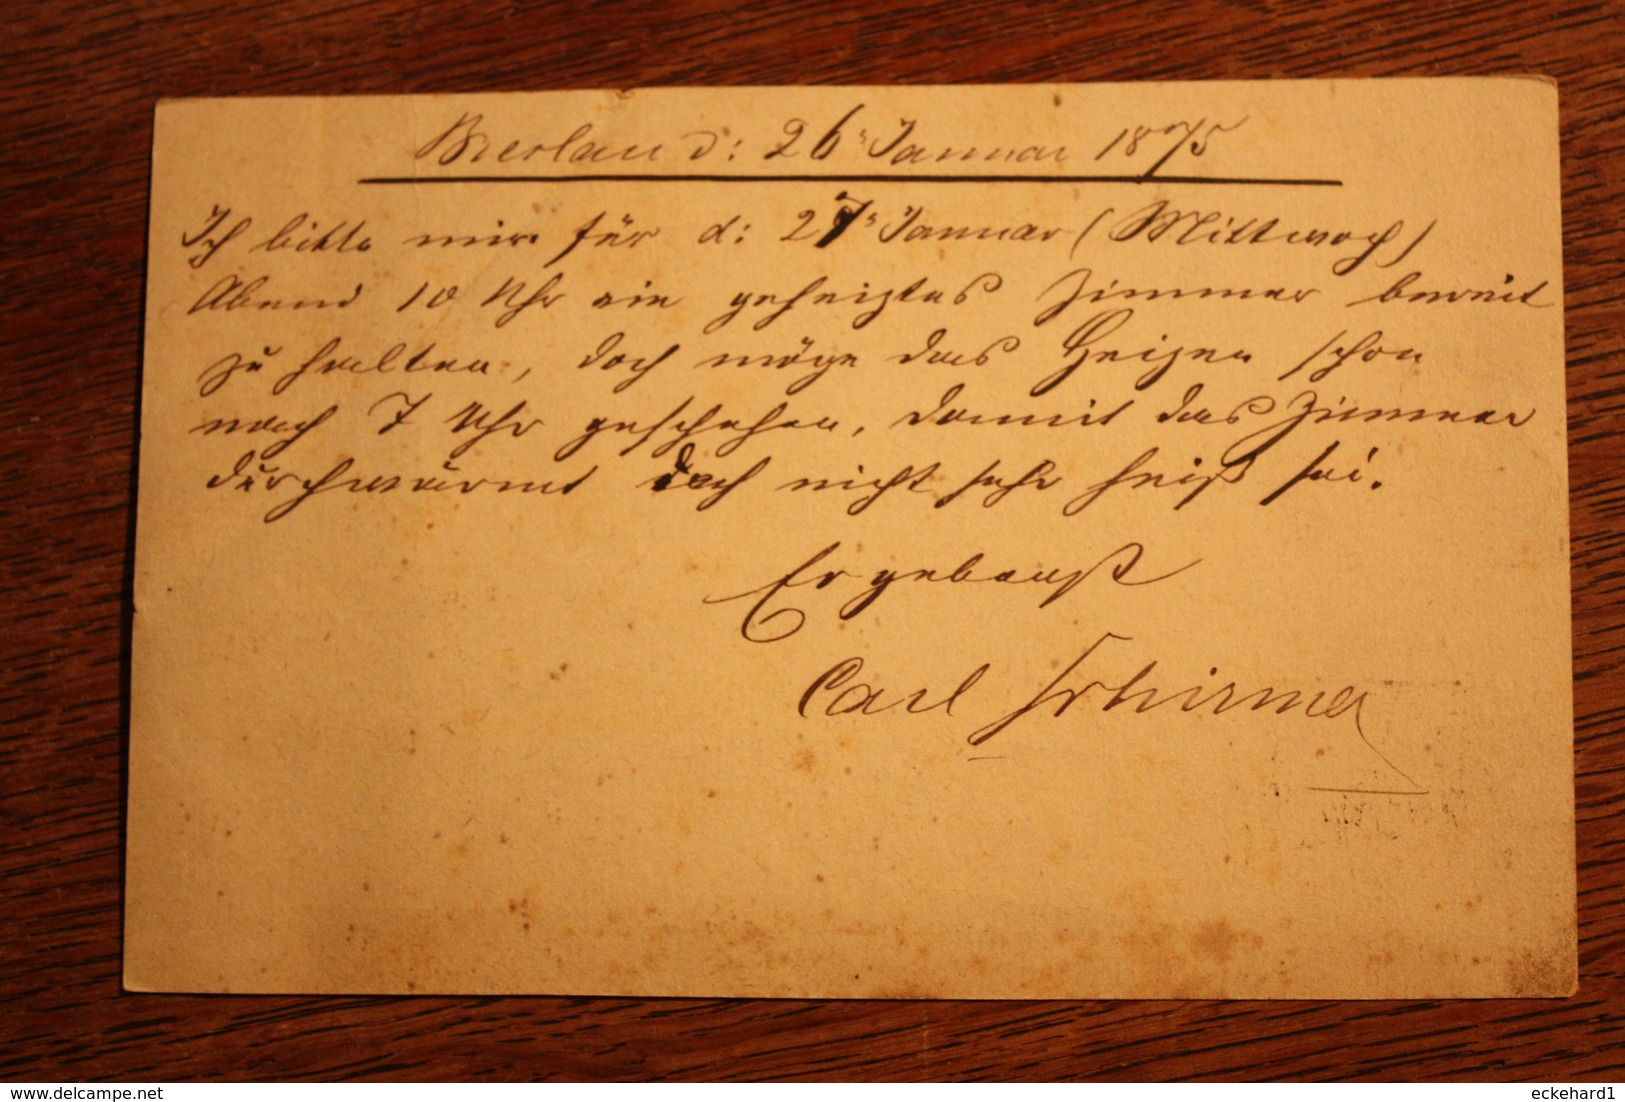 Breslau d: 26" Januar 1875
Ich bitte mir für d: 27" Januar (Mittwoch)
Abend 10 Uhr ein geheiztes Zimmer bereit
zu halten, doch möge das Heizen schon
nach 7 Uhr geschehen, damit das Zimmer
durchwärmt doch nicht sehr heiß sei.
Ergebenst
Carl Schirmer
delcampe.net
eckehard1